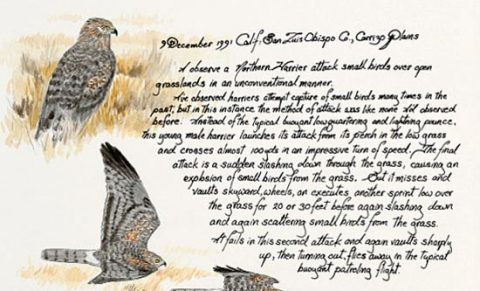 9 December 1991 Calif., San Luis Obispo Co., Carrizo Plains
I observe a Northern Harrier attack small birds over open
grasslands in an unconventional manner.
I've observed harriers attempt capture of small birds many times in the
past, but in this instance the method of attack was like none I'd observed
before. Instead of the typical buoyant low quartering and lighting pounce,
this young male harrier launches its attack from its perch in the low grass
and crosses almost 100 yds in an impressive turn of speed. The final
attack is a sudden slashing down through the grass, causing an
explosion of small birds from the grass. But it misses and
vaults skyward, wheels, an executes another sprint low over
the grass for 20 or 30 feet before again slashing down
and again scattering small birds from the grass.
It fails in this second attack and again vaults sharply
up, then turning out, flies away in the typical
buoyant patroling flight.